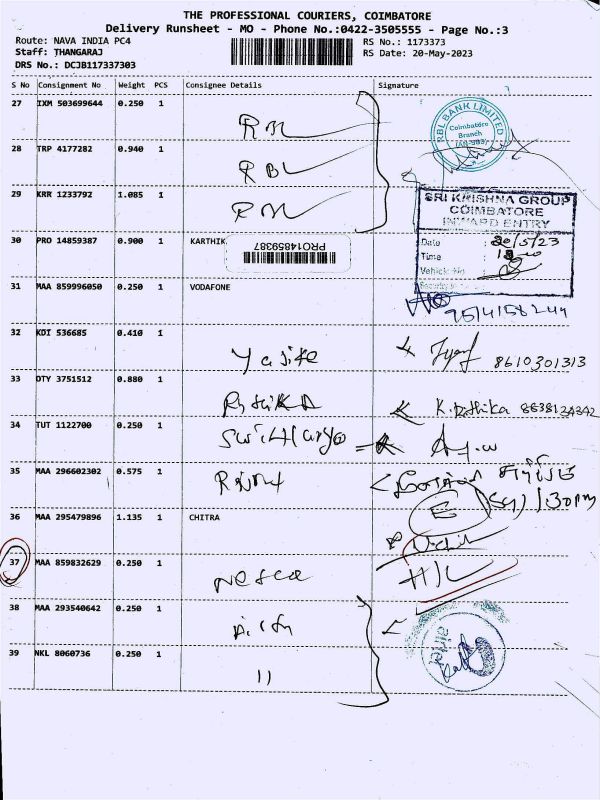 THE PROFESSIONAL COURIERS, COIMBATORE
Delivery Runsheet - MO - Phone No.:0422-3505555 - Page No.:3
Route: NAVA INDIA PC4
RS No.: 1173373
Staff: THANGARAJ
RS Date: 20-May-2023
DRS No.: DCJB117337303
S No Consignment No Weight PCS Consignee Details Signature
27 IXM 503699644 0.250 1
RBL BANK LIMITED
Coimbatore
Branch
28 TRP 4177282 0.940 1 RBL
29 KRR 1233792 1.085 1
SRI KRISHNA GROUP
COIMBATORE
INWARD ENTRY
30 PRO 14859387 0.900 1 KARTHIK PRO14859387
Date : 20/5/23
Time :
Vehicle No
31 MAA 859996050 0.250 1 VODAFONE
32 KDI 536685 0.410 1
8610301313
33 DTY 3751512 0.880 1
34 TUT 1122700 0.250 1
35 MAA 296602302 0.575 1
36 MAA 295479896 1.135 1 CHITRA
37 MAA 859832629 0.250 1
H/L
38 MAA 293540642 0.250 1
airtel
39 NKL 8060736 0.250 1 11